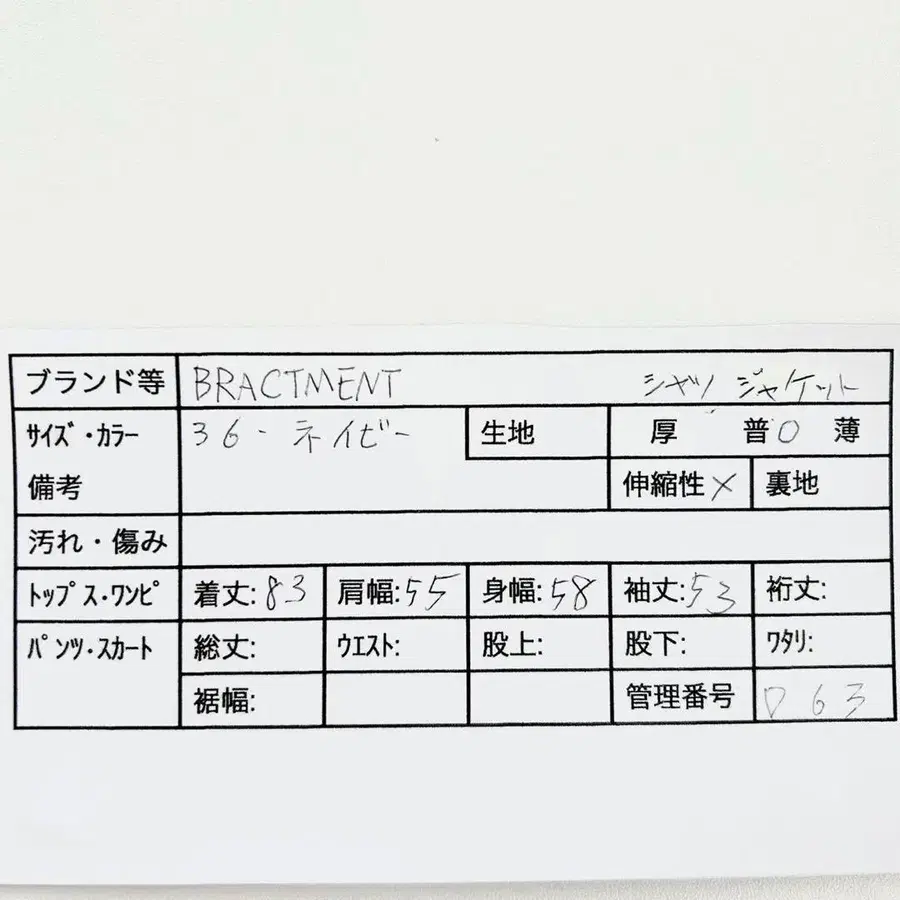 ブランド等 BRACTMENT シャツ ジャケット
サイズ・カラー 36-ネイビー 生地 厚 普○ 薄
備考 伸縮性× 裏地
汚れ・傷み
トップス・ワンピ 着丈:83 肩幅:55 身幅:58 袖丈:53 裄丈:
パンツ・スカート 総丈: ウエスト: 股上: 股下: ワタリ:
裾幅: 管理番号 D63